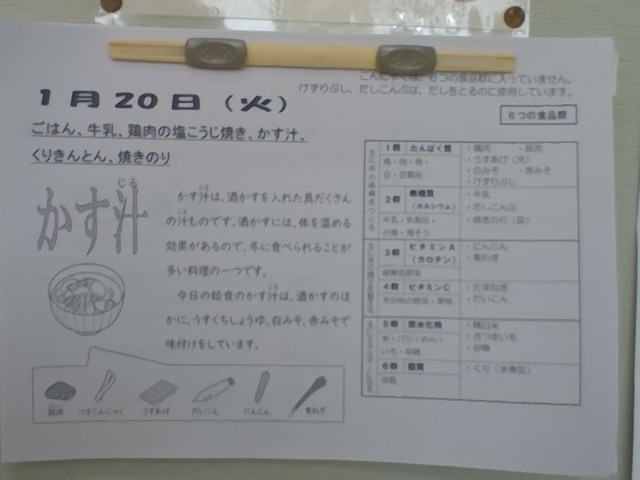 こんにゃくは、6つの食品群に入っていません。
けずりぶし、だしこんぶは、だしをとるのに使用しています。
1月20日（火）
6つの食品群
ごはん、牛乳、鶏肉の塩こうじ焼き、かす汁、
くりきんとん、焼きのり
じる
かす汁
かす汁は、酒かすを入れた具だくさん
の汁ものです。酒かすには、体を温める
効果があるので、冬に食べられることが
多い料理の一つです。
今日の給食のかす汁は、酒かすのほ
かに、うすくちしょうゆ、白みそ、赤みそで
味付けをしています。
鶏肉 つきこんにゃく うすあげ だいこん にんじん 青ねぎ
1群 たんぱく質
魚・肉・卵・
豆・豆製品
・鶏肉 ・豚肉
・うすあげ（冷）
・白みそ ・赤みそ
・けずりぶし
2群 無機質
（カルシウム）
牛乳・乳製品・
小魚・海そう
・牛乳
・だしこんぶ
・焼きのり（袋）
3群 ビタミンA
（カロテン）
緑黄色野菜
・にんじん
・青ねぎ
4群 ビタミンC
その他の野菜・果物
・たまねぎ
・だいこん
5群 炭水化物
米・パン・めん・
いも・砂糖
・精白米
・さつまいも
・砂糖
6群 脂質
油脂
・くり（水煮缶）